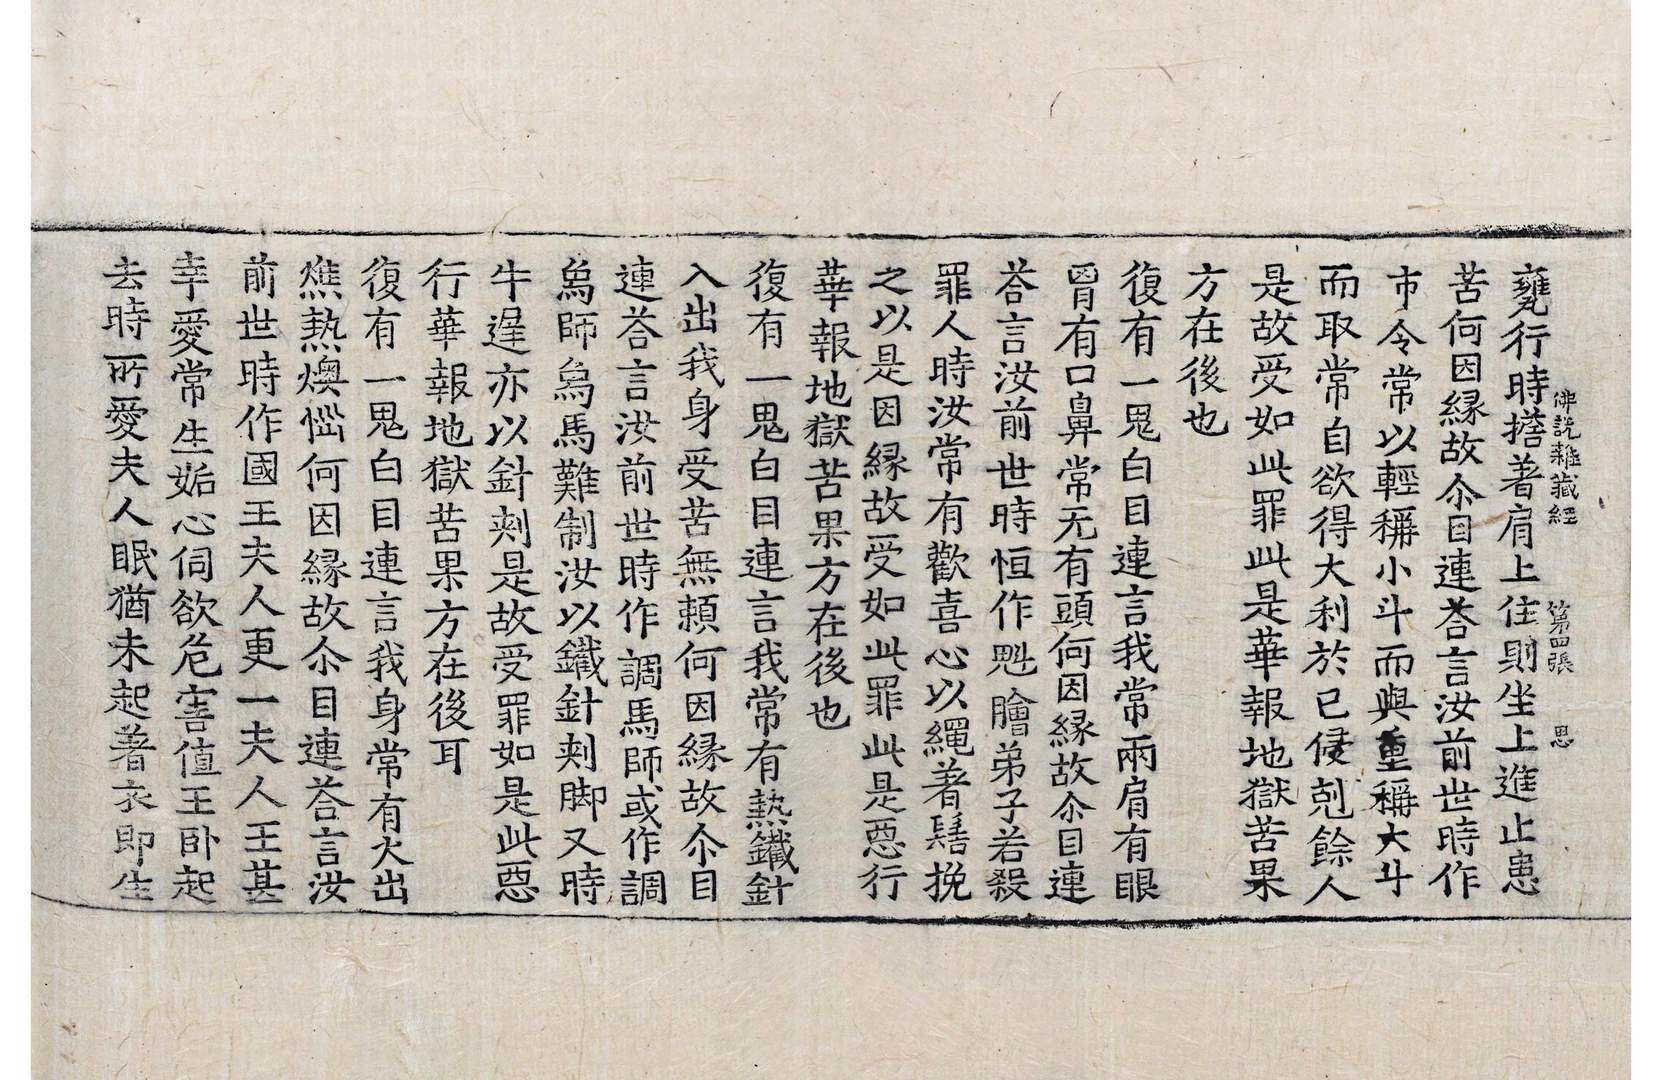 佛說雜藏經 第四張 思
甕行時擔著肩上住則坐上進止患
苦何因緣故尒目連荅言汝前世時作
市令常以輕稱小斗而與重稱大斗
而取常自欲得大利於已侵剋餘人
是故受如此罪此是華報地獄苦果
方在後也
復有一鬼白目連言我常兩肩有眼
胷有口鼻常无有頭何因緣故尒目連
荅言汝前世時恒作魁膾弟子若殺
罪人時汝常有歡喜心以繩著髻挽
之以是因緣故受如此罪此是惡行
華報地獄苦果方在後也
復有一鬼白目連言我常有熱鐵針
入出我身受苦無賴何因緣故尒目
連荅言汝前世時作調馬師或作調
象師象馬難制汝以鐵針刾脚又時
牛遲亦以針刾是故受罪如是此惡
行華報地獄苦果方在後耳
復有一鬼白目連言我身常有火出
燋熱懊惱何因緣故尒目連荅言汝
前世時作國王夫人更一夫人王甚
幸愛常生妬心伺欲危害值王卧起
去時所愛夫人眠猶未起著衣即生